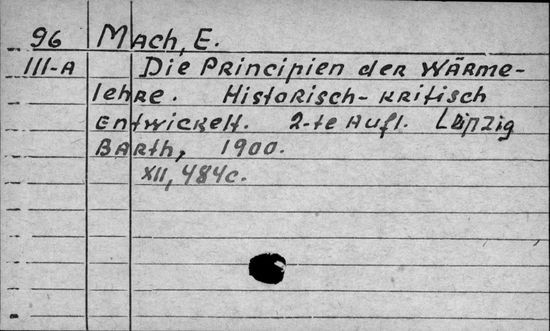 96 Mach, E.
III-A Die Principien der Wärme-
lehre. Historisch-kritisch
entwickelt. 2-te Aufl. Leipzig
Barth, 1900.
XII, 484c.